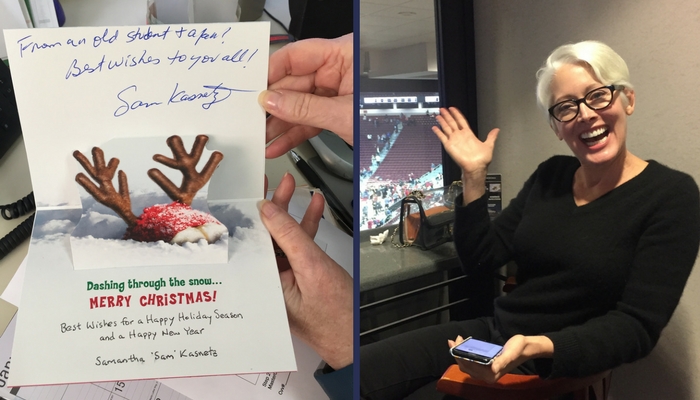 From an old student & a fan!
Best wishes to you all!
Sam Kasnetz
Dashing through the snow...
MERRY CHRISTMAS!
Best Wishes for a Happy Holiday Season
and a Happy New Year
Samantha 'Sam' Kasnetz
15